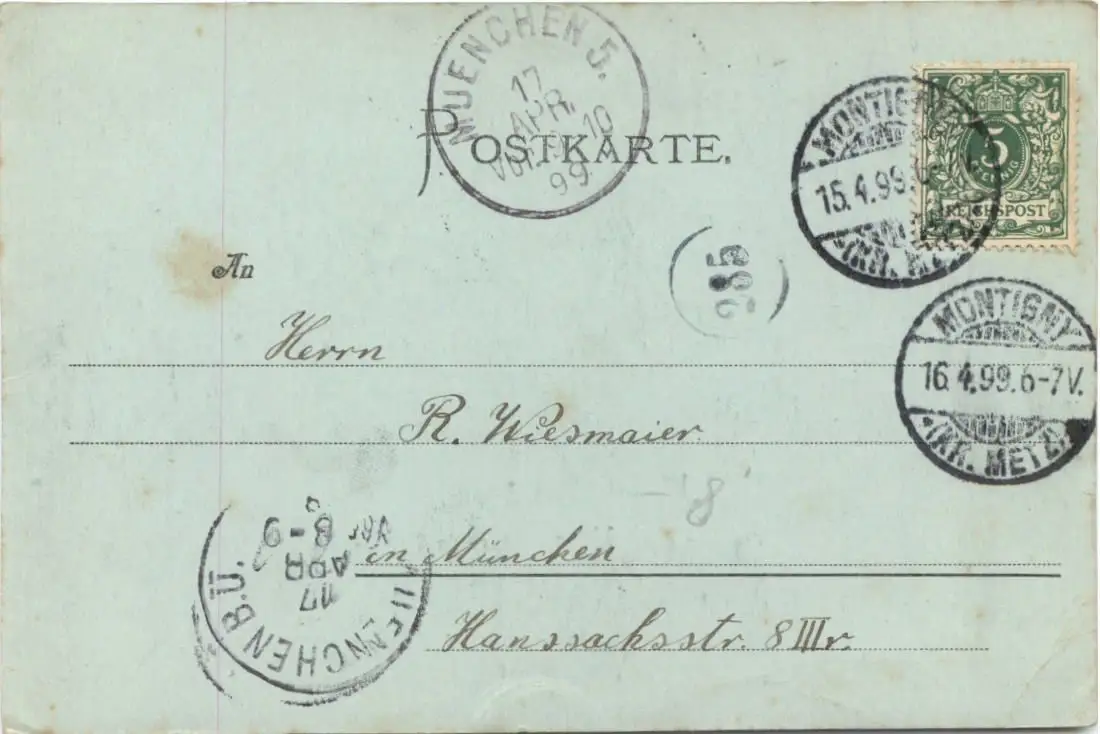 MUENCHEN 5.
17
APR.
Vor. 9-10
99
POSTKARTE.
5
PFENNIG
REICHSPOST
MONTIGNY
15.4.99.
*(KR. METZ)
285
An
Herrn
MONTIGNY
16.4.99.6-7V.
*(KR. METZ)
R. Wiesmaier
8
in München
MUENCHEN B.Ü.
17
APR
Vor 8-9
Hanssachsstr. 8 III r.